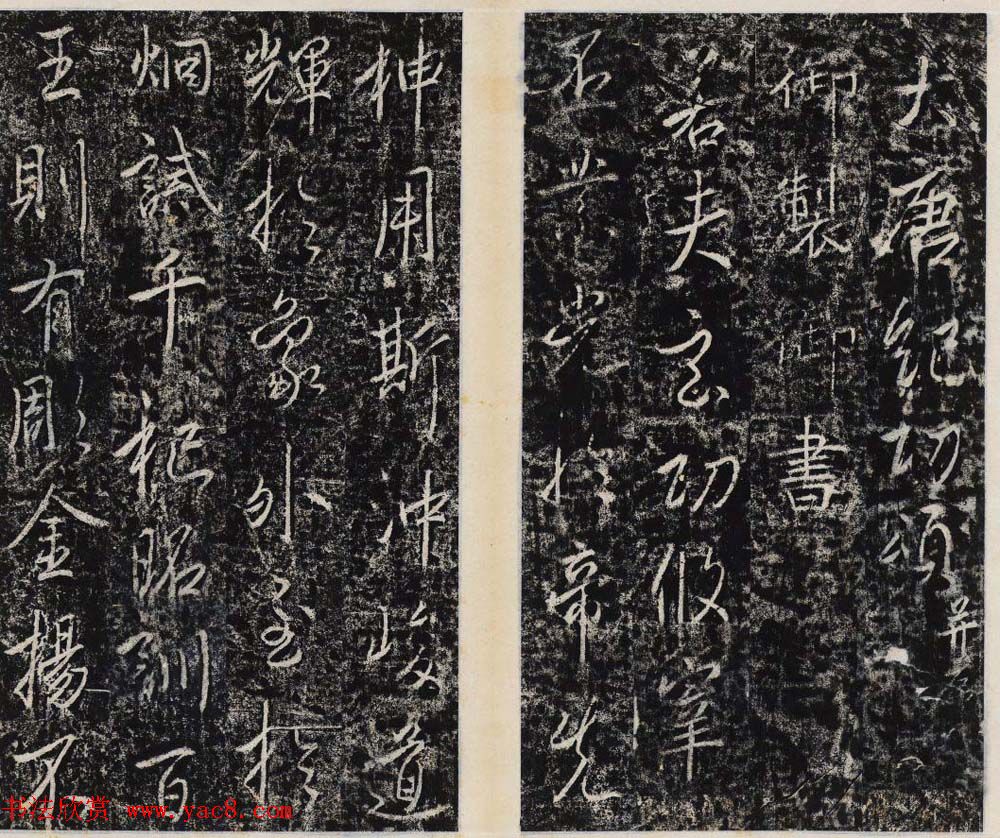 大唐紀功頌并序
御製御書
若夫玄功攸宰
丕業光於帝先
神用斯沖峻道
輝於象外至於
炯誡千祀昭訓百
王則有彫金揚不
书法欣赏 www.yac8.com